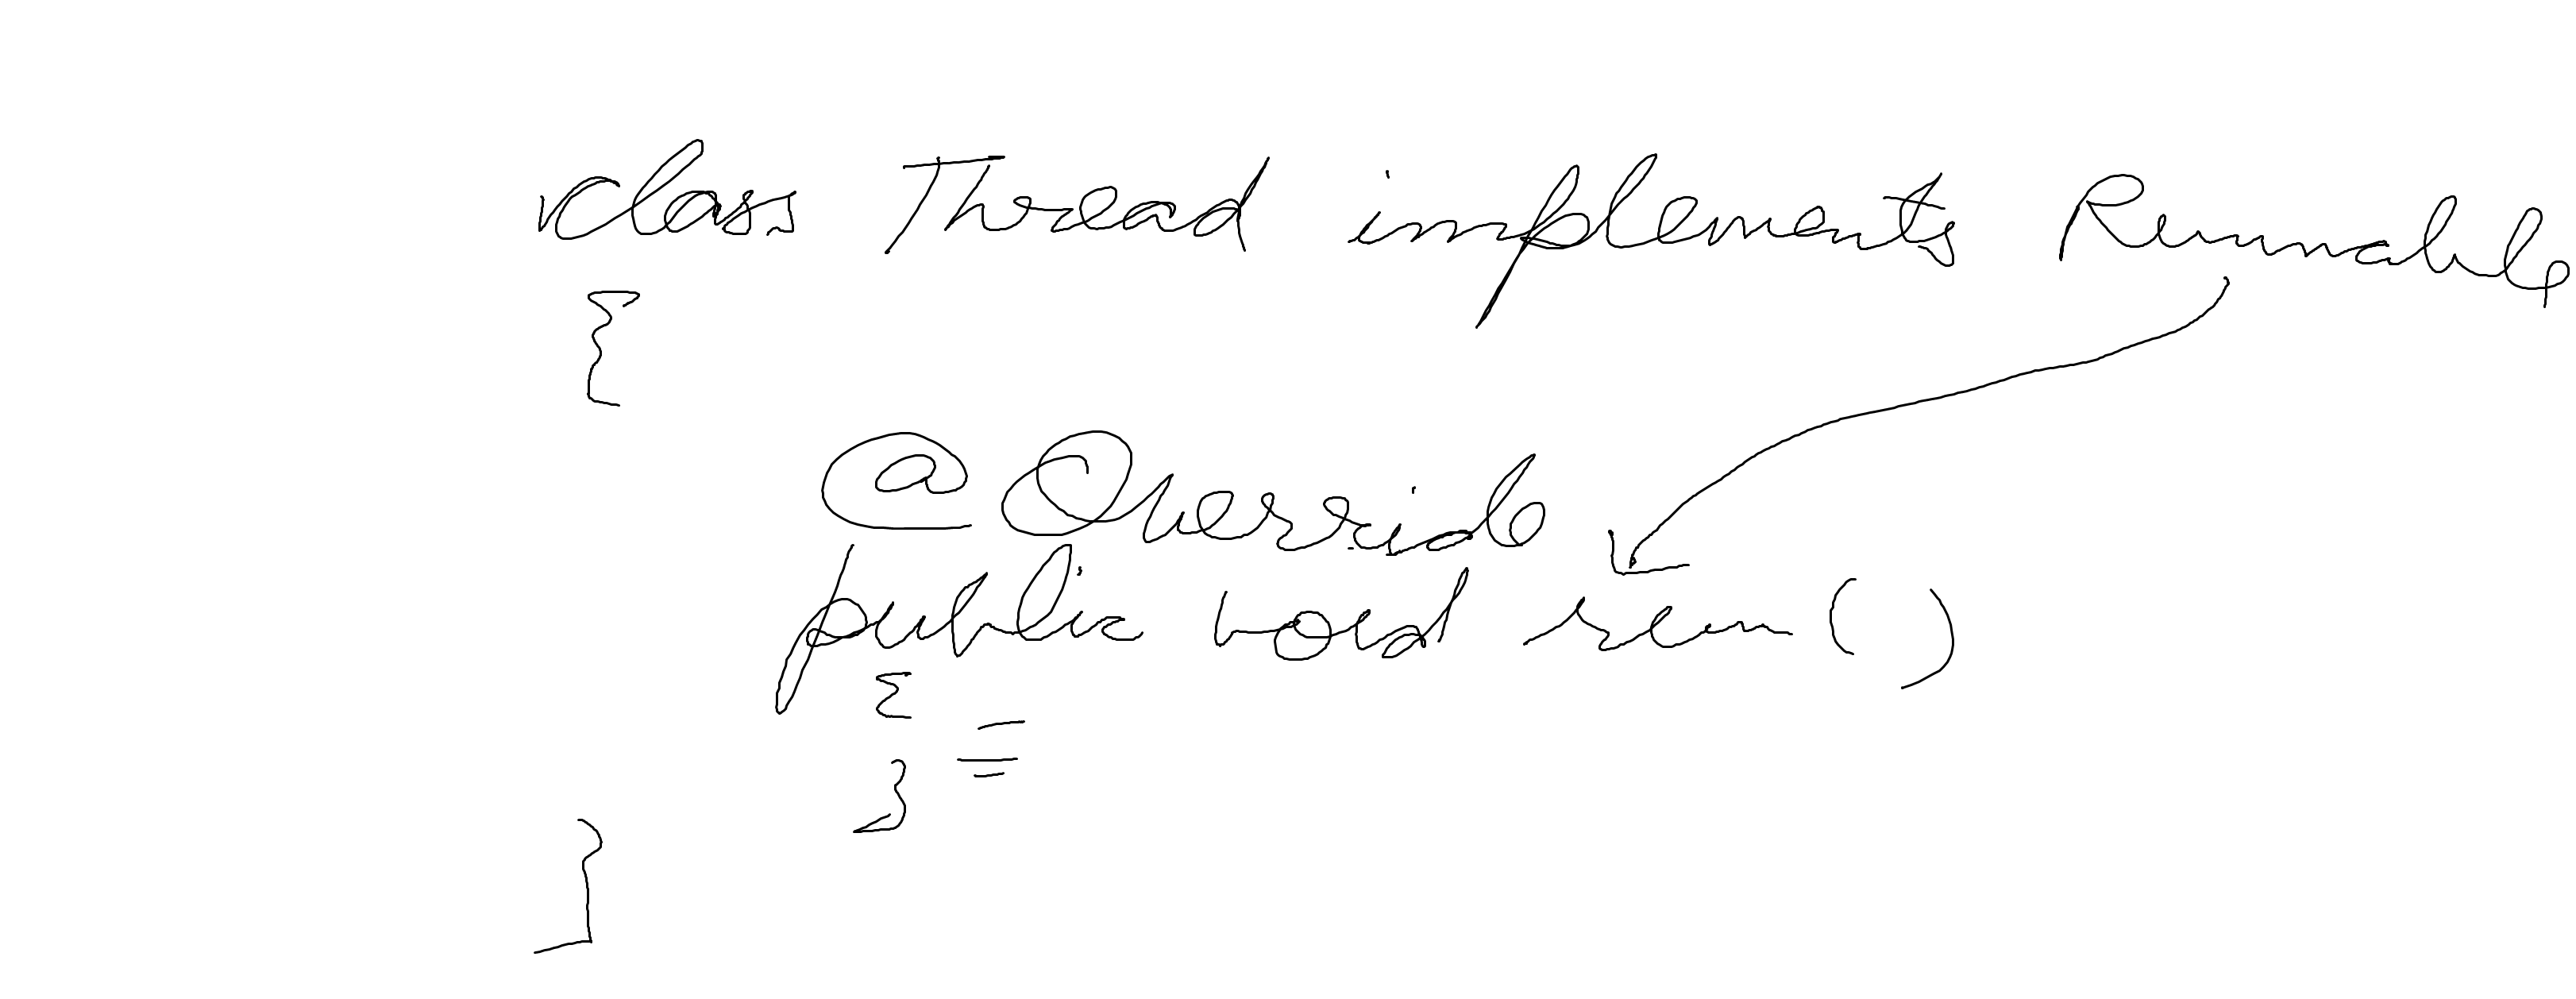 class Thread implements Runnable
{
@Override
public void run()
{
}
}